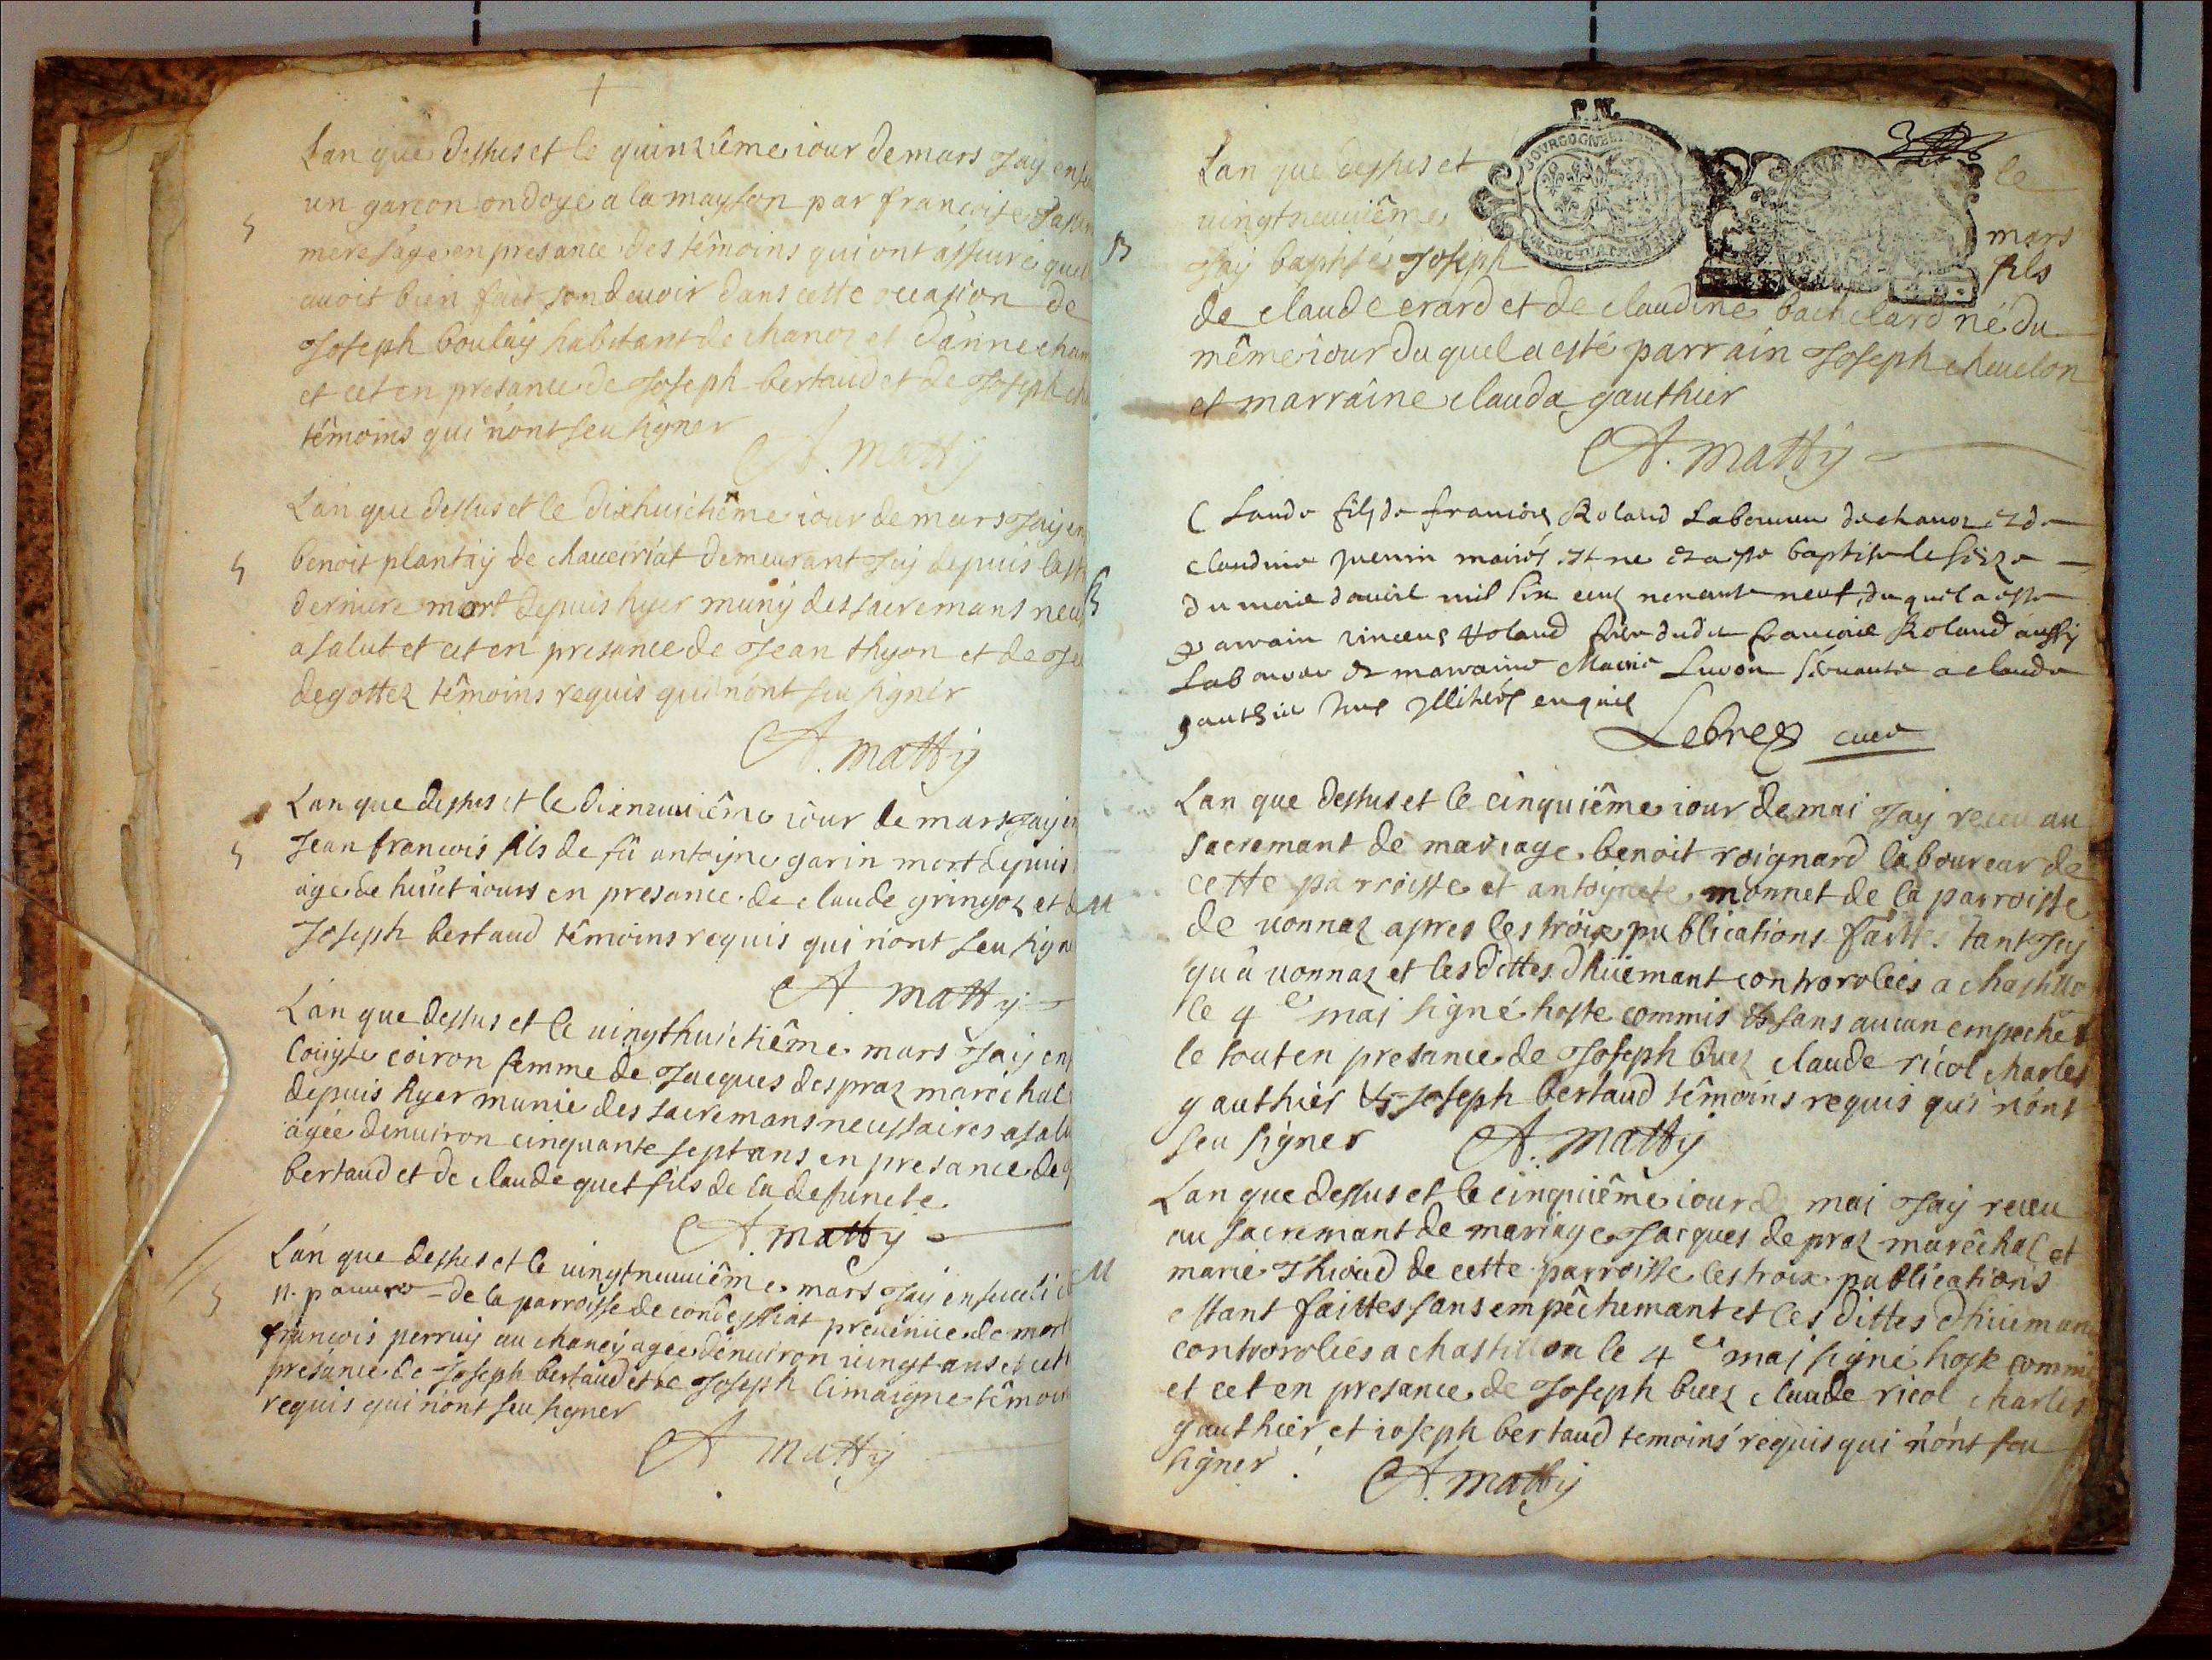 Lan que dessus et le quinziême iour de mars Jay
un garcon ondoyé a la mayson par francoise
mere sage en presance des têmoins qui ont assuré
auoit bien fait son deuoir dans cette occasion de
Joseph boulay habitant de chanoz et d'anne
et cet en presance de Joseph bertaud et de Joseph
têmoins qui n'ont seu signer
A. matty
Lan que dessus et le dixhuictiême iour de mars Jay
benoit plantay de chaueiriat demeurant Jcy depuis
derniere mort depuis hyer muny des sacremans
a salut et cet en presance de Jean thyon et de
degottez têmoins requis qui n'ont seu signer
A. matty
Lan que dessus et le dixneuuiême iour de mars Jay
Jean francois fils de fû antoyne garin mort depuis
age de huict iours en presance de claude gringoz et
Joseph bertaud têmoins requis qui n'ont seu
A matty
Lan que dessus et le uingthuictiême mars Jay
Louyse coiron femme de Jacques despraz marêchal
depuis hyer munie des sacremans neussaires a
agée denuiron cinquante sept ans en presance de
bertaud et de claude quet fils de la defuncte
A. matty
Lan que dessus et le uingtneuuiême mars Jay enseueli
n. pauure de la parroisse de condeyssiat preuenüe de mort
francois perruy au chaney agée denuiron uingt ans et
presance de Joseph bertaud et de Joseph limaigne
requis qui n'ont seu signer
A matty
Lan que dessus et le
uingtneuuiême mars
Jay baptisé Joseph fils
de claude erard et de claudine bachelard né du
même iour duquel a esté parrain Joseph cheuelon
et marraine clauda gauthier
A. matty
Claude filz de francois Roland Laboureur de chanoz et de
claudine Juenin mariés est ne et a este baptise le seize
du mois dauril mil six cent nonante neuf, duquel a este
parrain vincent Roland frere dudit francois Roland aussy
Laboureur et marraine Marie seruante a claude
gauthier enquis
Lebrez cure
Lan que dessus et le cinquiême iour de mai Jay receu au
sacremant de mariage benoit roignard laboureur de
cette parroisse et antoynete monnet de la parroisse
de uonnaz apres les troix publications faittes tant Jcy
qu'â uonnaz et les dittes dhüemant controrolées a
le 4e mai signé hoste commis & sans aucun
le tout en presance de Joseph buez claude ricol charles
gauthier & Joseph bertaud têmoins requis qui n'ont
seu signer A. matty
Lan que dessus et le cinquiême iour de mai Jay receu
au sacremant de mariage Jacques de praz marêchal et
marie thioud de cette parroisse les troix publications
estant faittes sans empêchemant et les dittes
controrolées a chastillon le 4e mai signé hoste
et cet en presance de Joseph buez claude ricol charles
gauthier et ioseph bertaud temoins requis qui n'ont seu
signer. A. matty